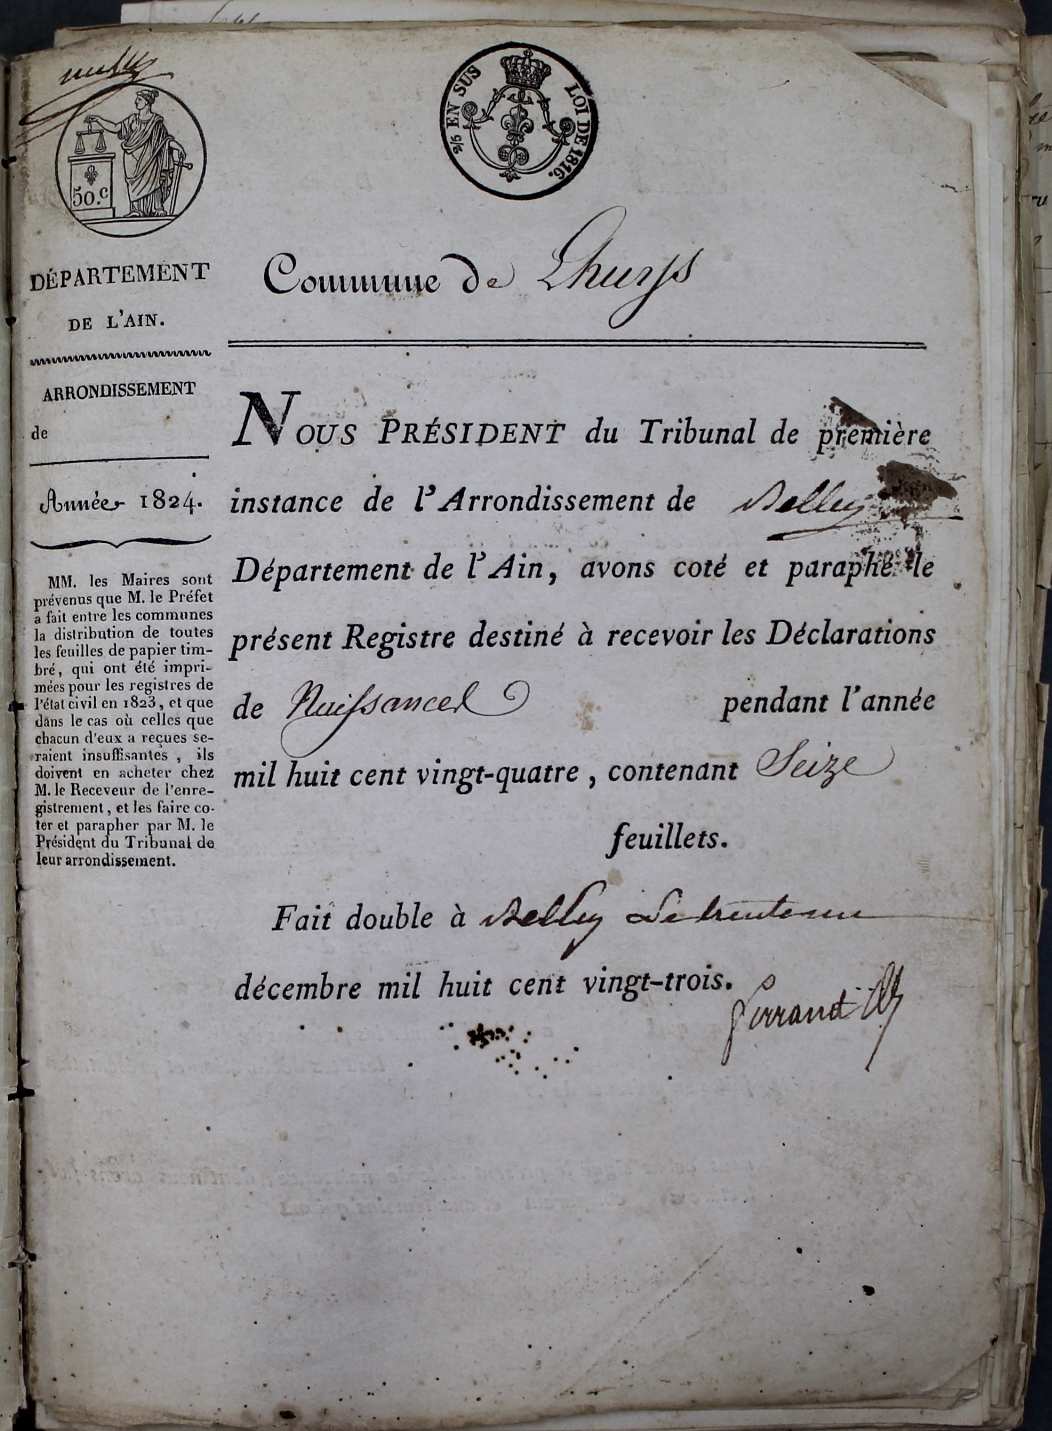 50.c
2/5 EN SUS LOI DE 1816.
DÉPARTEMENT
DE L'AIN.
ARRONDISSEMENT
de
Année 1824.
MM. les Maires sont
prévenus que M. le Préfet
a fait entre les communes
la distribution de toutes
les feuilles de papier tim-
bré, qui ont été impri-
mées pour les registres de
l'état civil en 1823, et que
dans le cas où celles que
chacun d'eux a reçues se-
raient insuffisantes, ils
doivent en acheter chez
M. le Receveur de l'enre-
gistrement, et les faire co-
ter et parapher par M. le
Président du Tribunal de
leur arrondissement.
Commune de Lhuys
NOUS PRÉSIDENT du Tribunal de première
instance de l'Arrondissement de Belley
Département de l'Ain, avons coté et paraphé le
présent Registre destiné à recevoir les Déclarations
de Naissances pendant l'année
mil huit cent vingt-quatre, contenant Seize
feuillets.
Fait double à Belley Le trente un
décembre mil huit cent vingt-trois.